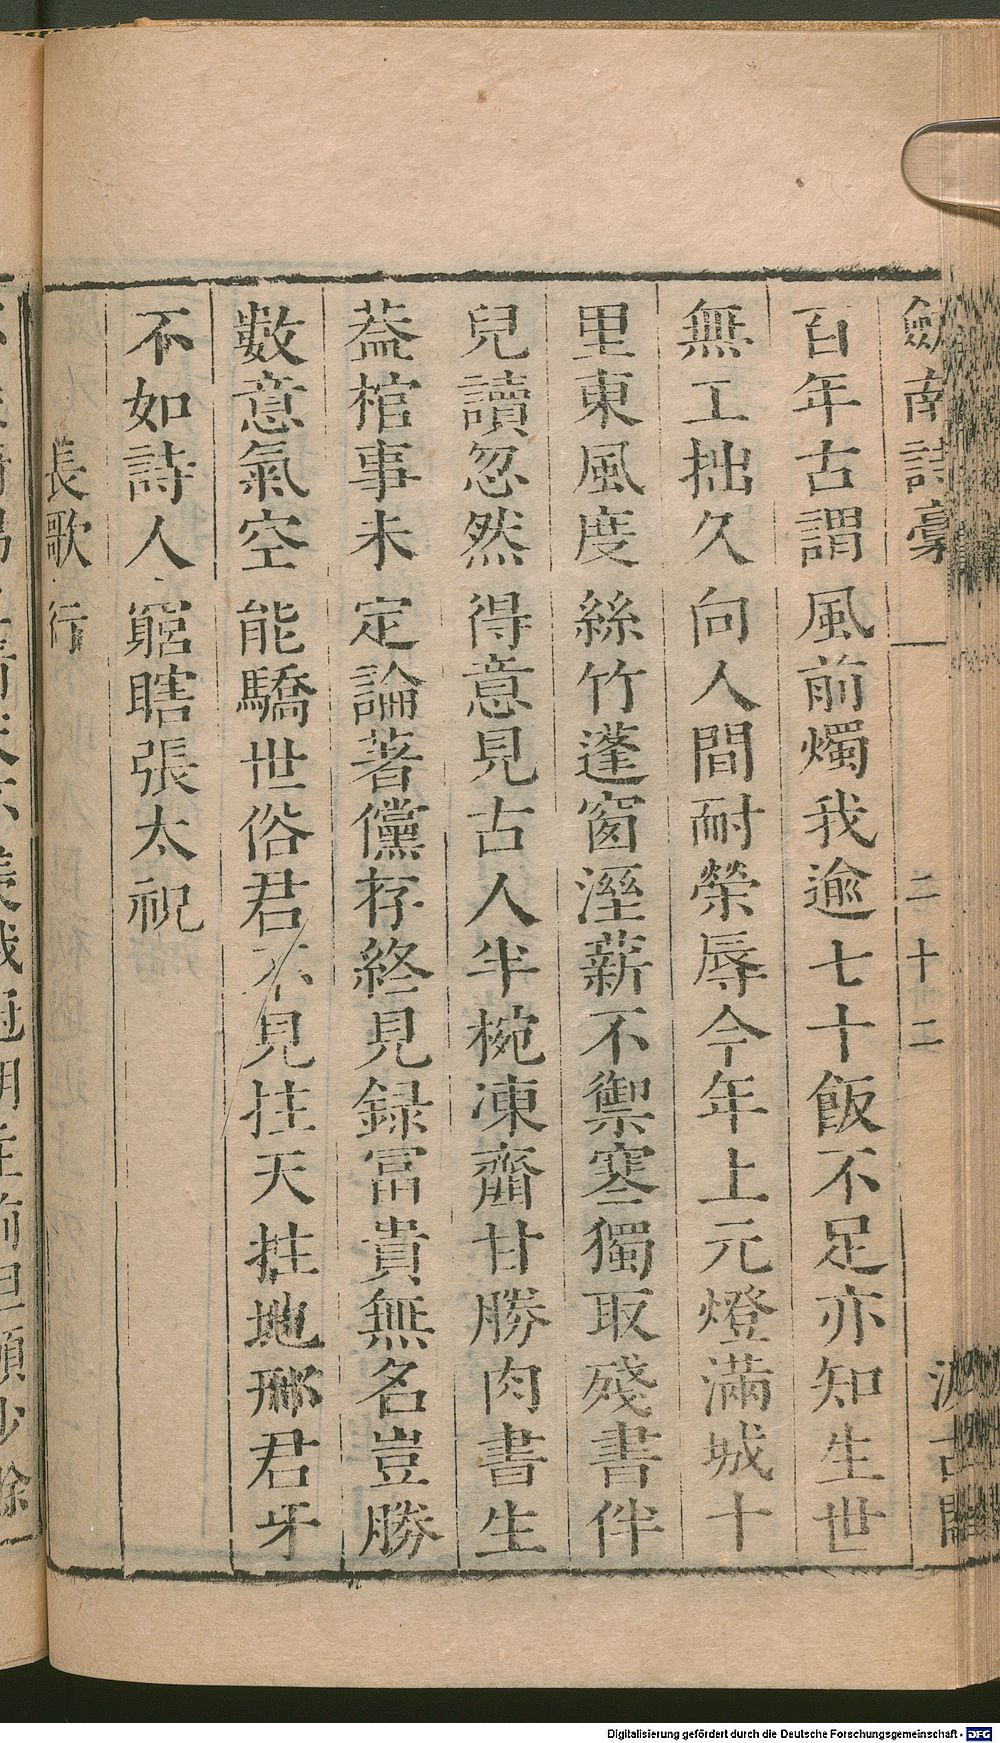 劎南詩藳
二十二
汲古閣
百年古謂風前燭我逾七十飯不足亦知生世
無工拙久向人間耐榮辱今年上元燈滿城十
里東風度絲竹蓬窗溼薪不禦寒獨取殘書伴
兒讀忽然得意見古人半椀凍齏甘勝肉書生
葢棺事未定論著儻存終見録冨貴無名豈勝
數意氣空能驕世俗君不見拄天拄地邢君牙
不如詩人窮瞎張太祝
長歌行
Digitalisierung gefördert durch die Deutsche Forschungsgemeinschaft - DFG